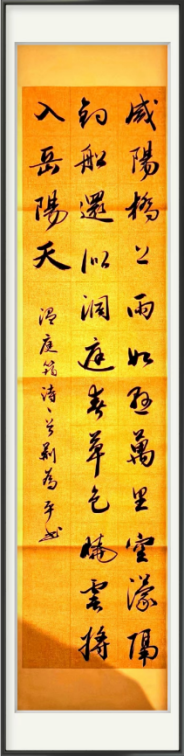 咸陽橋上雨如懸萬里空濛隔
釣船還似洞庭春草色曉雲將
入岳陽天
溫庭筠詩